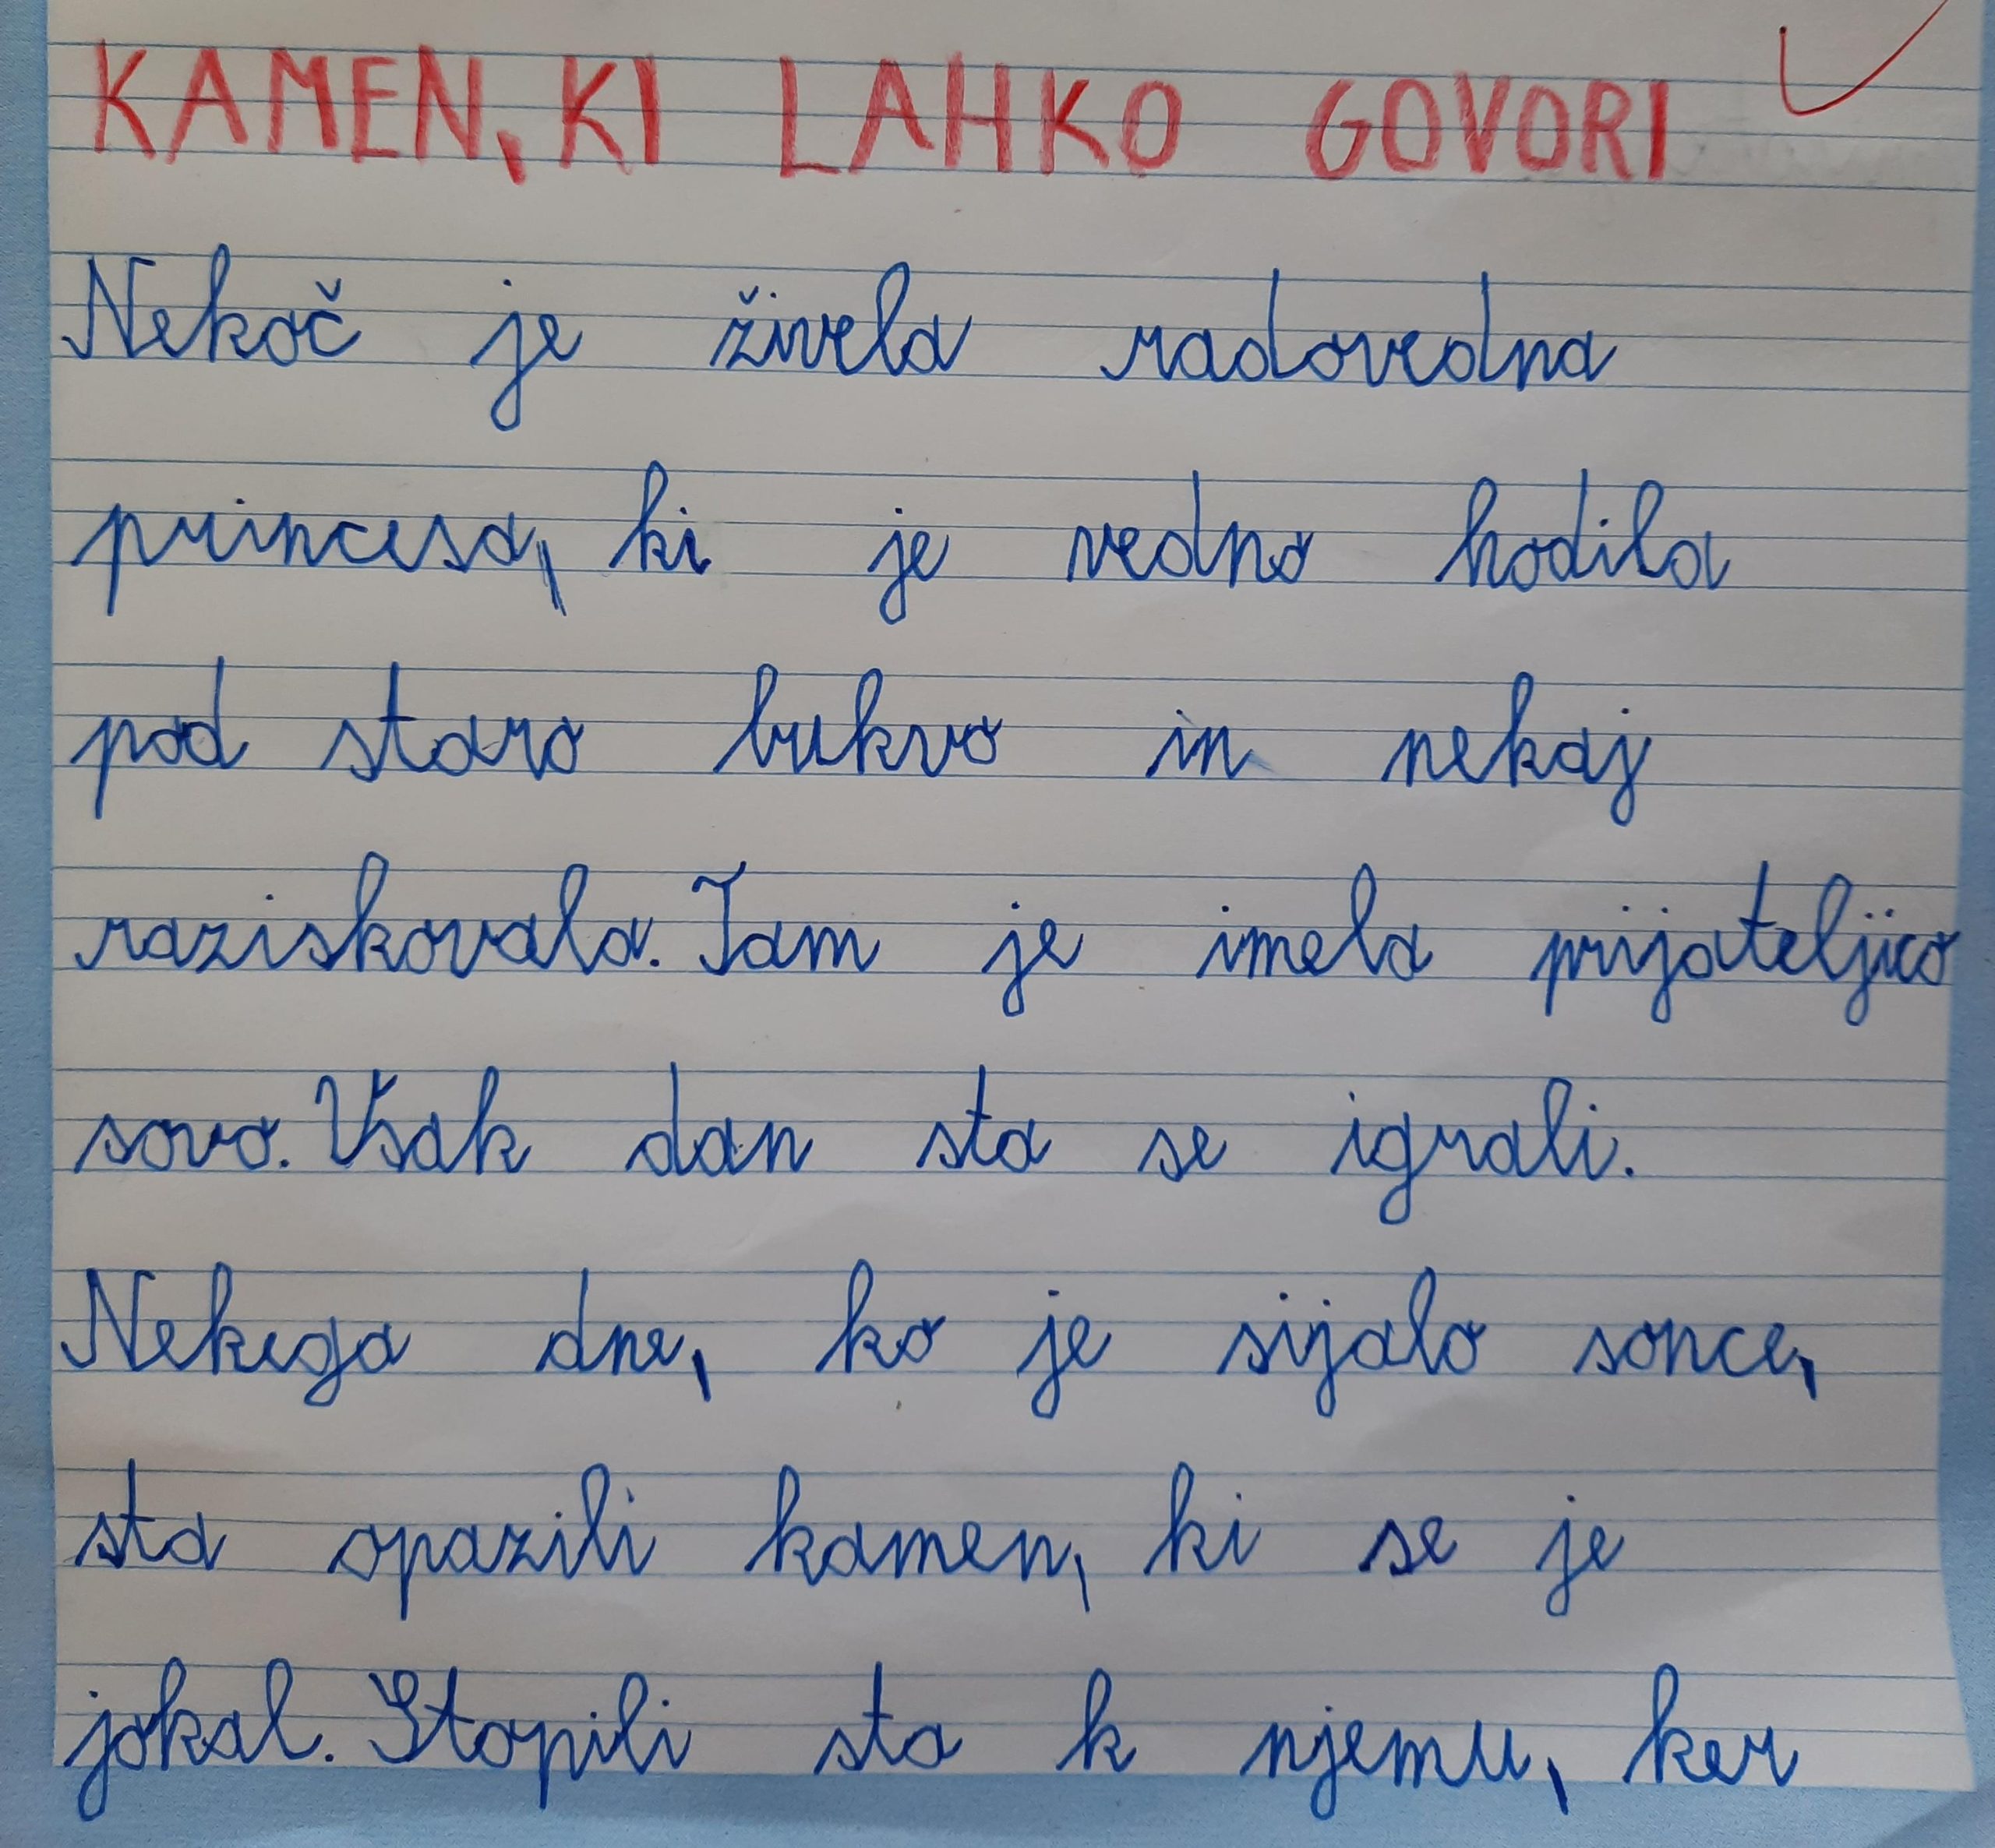 KAMEN, KI LAHKO GOVORI
Nekoč je živela radovedna
princesa, ki je vedno hodila
pod staro bukvo in nekaj
raziskovala. Tam je imela prijateljico
sovo. Vsak dan sta se igrali.
Nekega dne, ko je sijalo sonce,
sta opazili kamen, ki se je
jokal. Stopili sta k njemu, ker